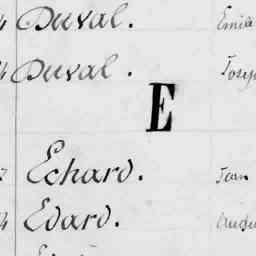 4 Duval. Emil
4 Duval. Josep
E
7 Echard. Jean
4 Edard. Augu